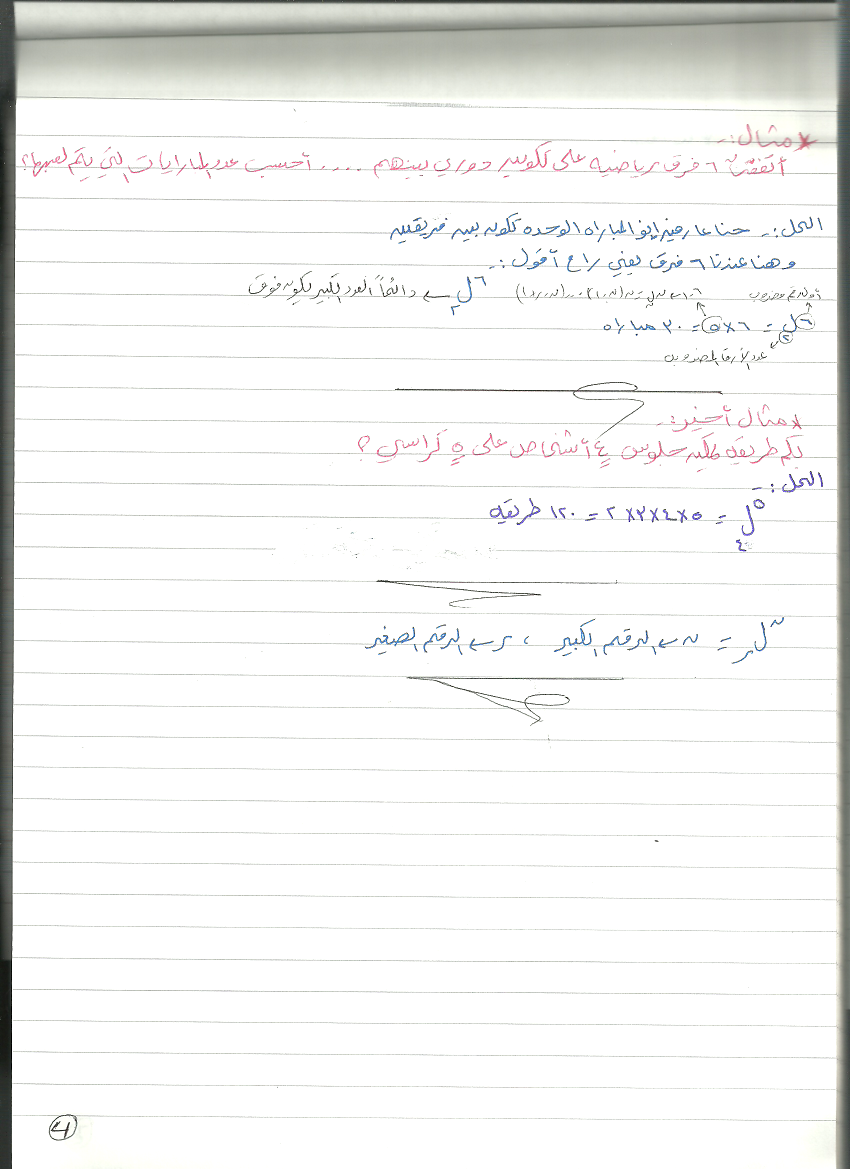 * مثال :-
أتفقت ٦ فرق رياضيه على تكوين دوري بينهم .... أحسب عدد المباريات التي يتم لعبها؟
الحل :- حنا عارفين إنو المباراه الوحده تكون بين فريقين
و هنا عندنا ٦ فرق يعني راح أقول :-
٦ل٢ ← دائماً العدد الكبير يكون فوق
أول رقم مضروب
٦ل٢ = ٦×٥ = ٣٠ مباراه
عدد الأرقام المضروبه
* مثال أخير :-
بكم طريقه يمكن جلوس ٤ أشخاص على ٥ كراسي ؟
الحل :-
٥ل٤ = ٥×٤×٣×٢ = ١٢٠ طريقه
نلر = ن ← الرقم الكبير ، ر ← الرقم الصغير
4